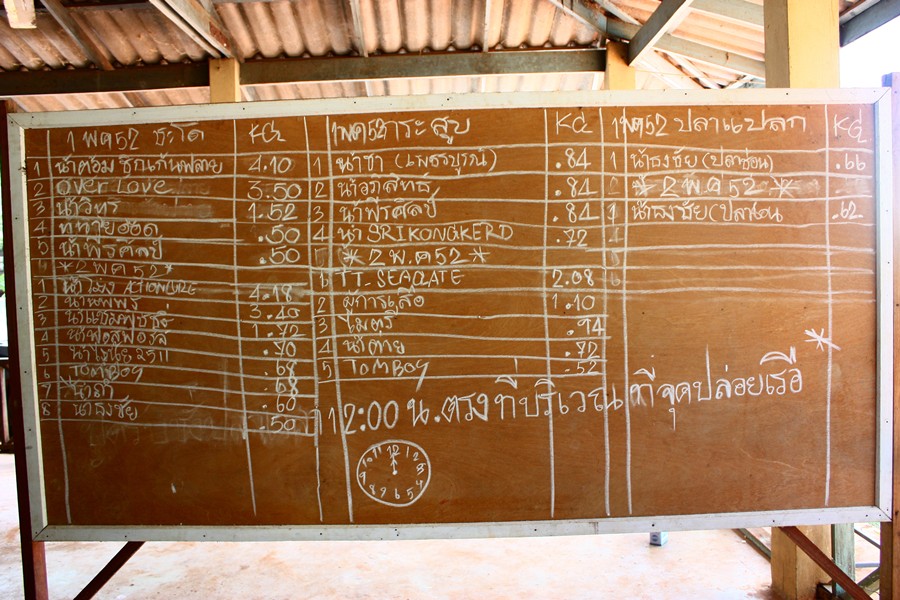 1 พค52 ชะโด KG.
1 น้าต้อม ซุกเก้นพลาย 4.10
2 OVER LOVE 3.50
3 น้าวิทร 1.52
4 .50
5 น้าพีรศิลป์ .50
* 2 พค 52 *
1 4.18
2 3.40
3 1.72
4 .70
5 .68
6 TOMBOY .68
7 น้าดำ .60
8 น้าธงชัย .50
1พค52 กระสูบ KG
1 น้าชา (เพชรบูรณ์) .84
2 น้าอภิสิทธิ์ .84
3 น้าพีรศิลป์ .84
4 น้า SRIKONGKERD .72
* 2 พ.ค 52 *
TT_SEAGATE 2.08
2 ผู้การเสือ 1.10
3 ไมตรี .94
4 น้าตาย .72
5 TOMBOY .52
1พค52 ปลาแปลก KG
1 น้าธงชัย (ปลาช่อน) .66
* 2 พ.ค 52 *
1 น้าธงชัย (ปลา .62
12:00 น. ตรง ที่บริเวณ ที่จุดปล่อยเรือ *
12 1 2 3 4 5 6 7 8 9 10 11